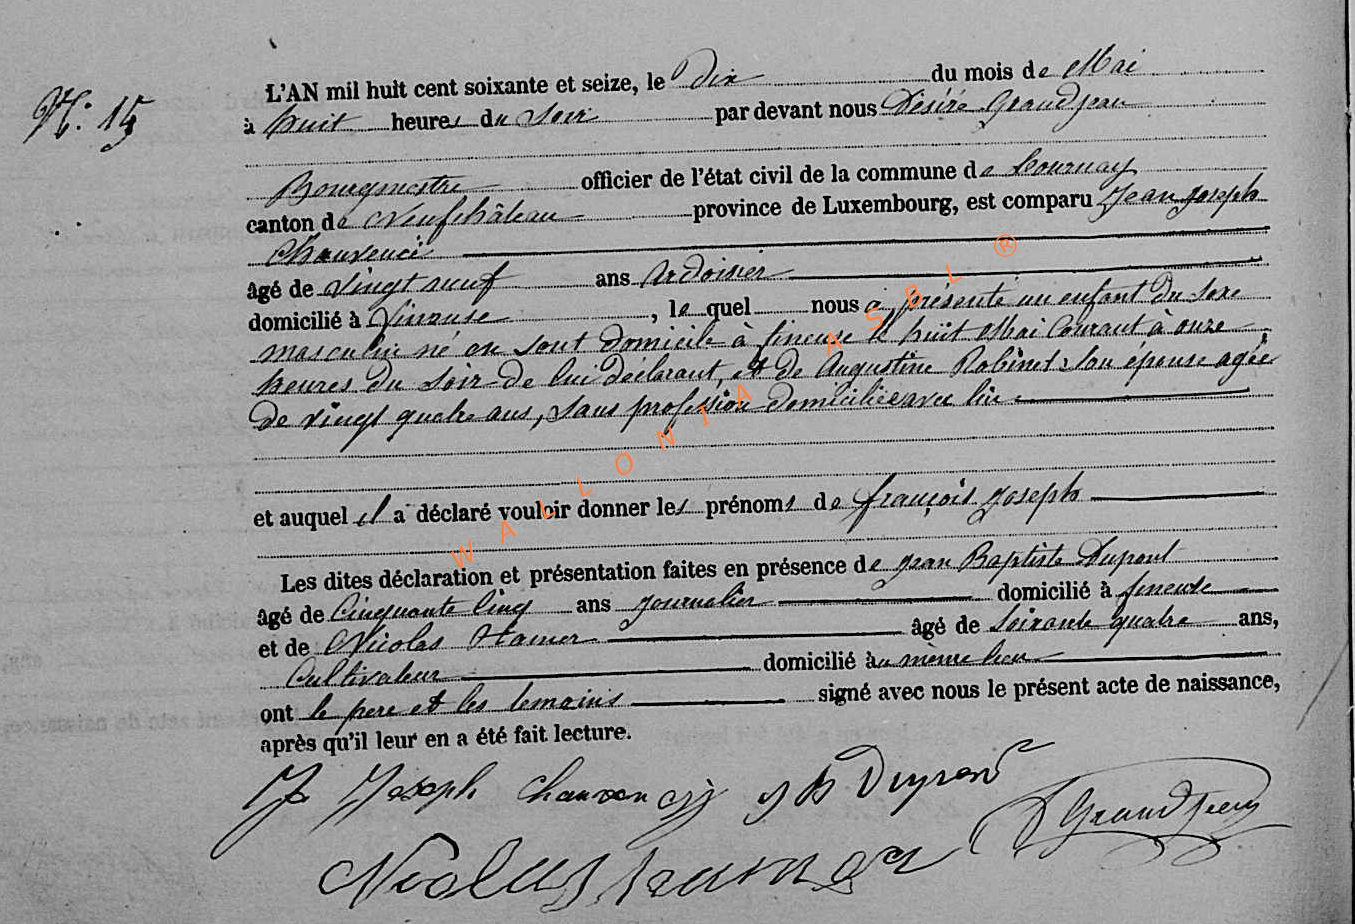 N: 15
L'AN mil huit cent soixante et seize, le Dix du mois de Mai
à huit heures du Soir par devant nous Désiré Grandjean
Bourgmestre officier de l'état civil de la commune de Tournay
canton de Neufchâteau province de Luxembourg, est comparu Jean Joseph
Chauvencé
âgé de Vingt neuf ans Ardoisier
domicilié à Fineuse, le quel nous a présenté un enfant du sexe
masculin né en sont domicile à fineuse le huit Mai Courant à onze
heures du Soir de lui déclarant, et de Augustine Robinet Son épouse agée
de vingt quatre ans, sans profession domiciliée avec lui
et auquel il a déclaré vouloir donner les prénoms de françois Joseph
Les dites déclaration et présentation faites en présence de jean Baptiste Dupont
âgé de Cinquante Cinq ans journalier domicilié à fineuse
et de Nicolas Hamer âgé de Soixante quatre ans,
Cultivateur domicilié au même lieu
ont le pere et les temoins signé avec nous le présent acte de naissance,
après qu'il leur en a été fait lecture.
J Joseph Chauvency J B Dupont
D Grandjean
Nicolas hamer
WALLONIA ASBL ®